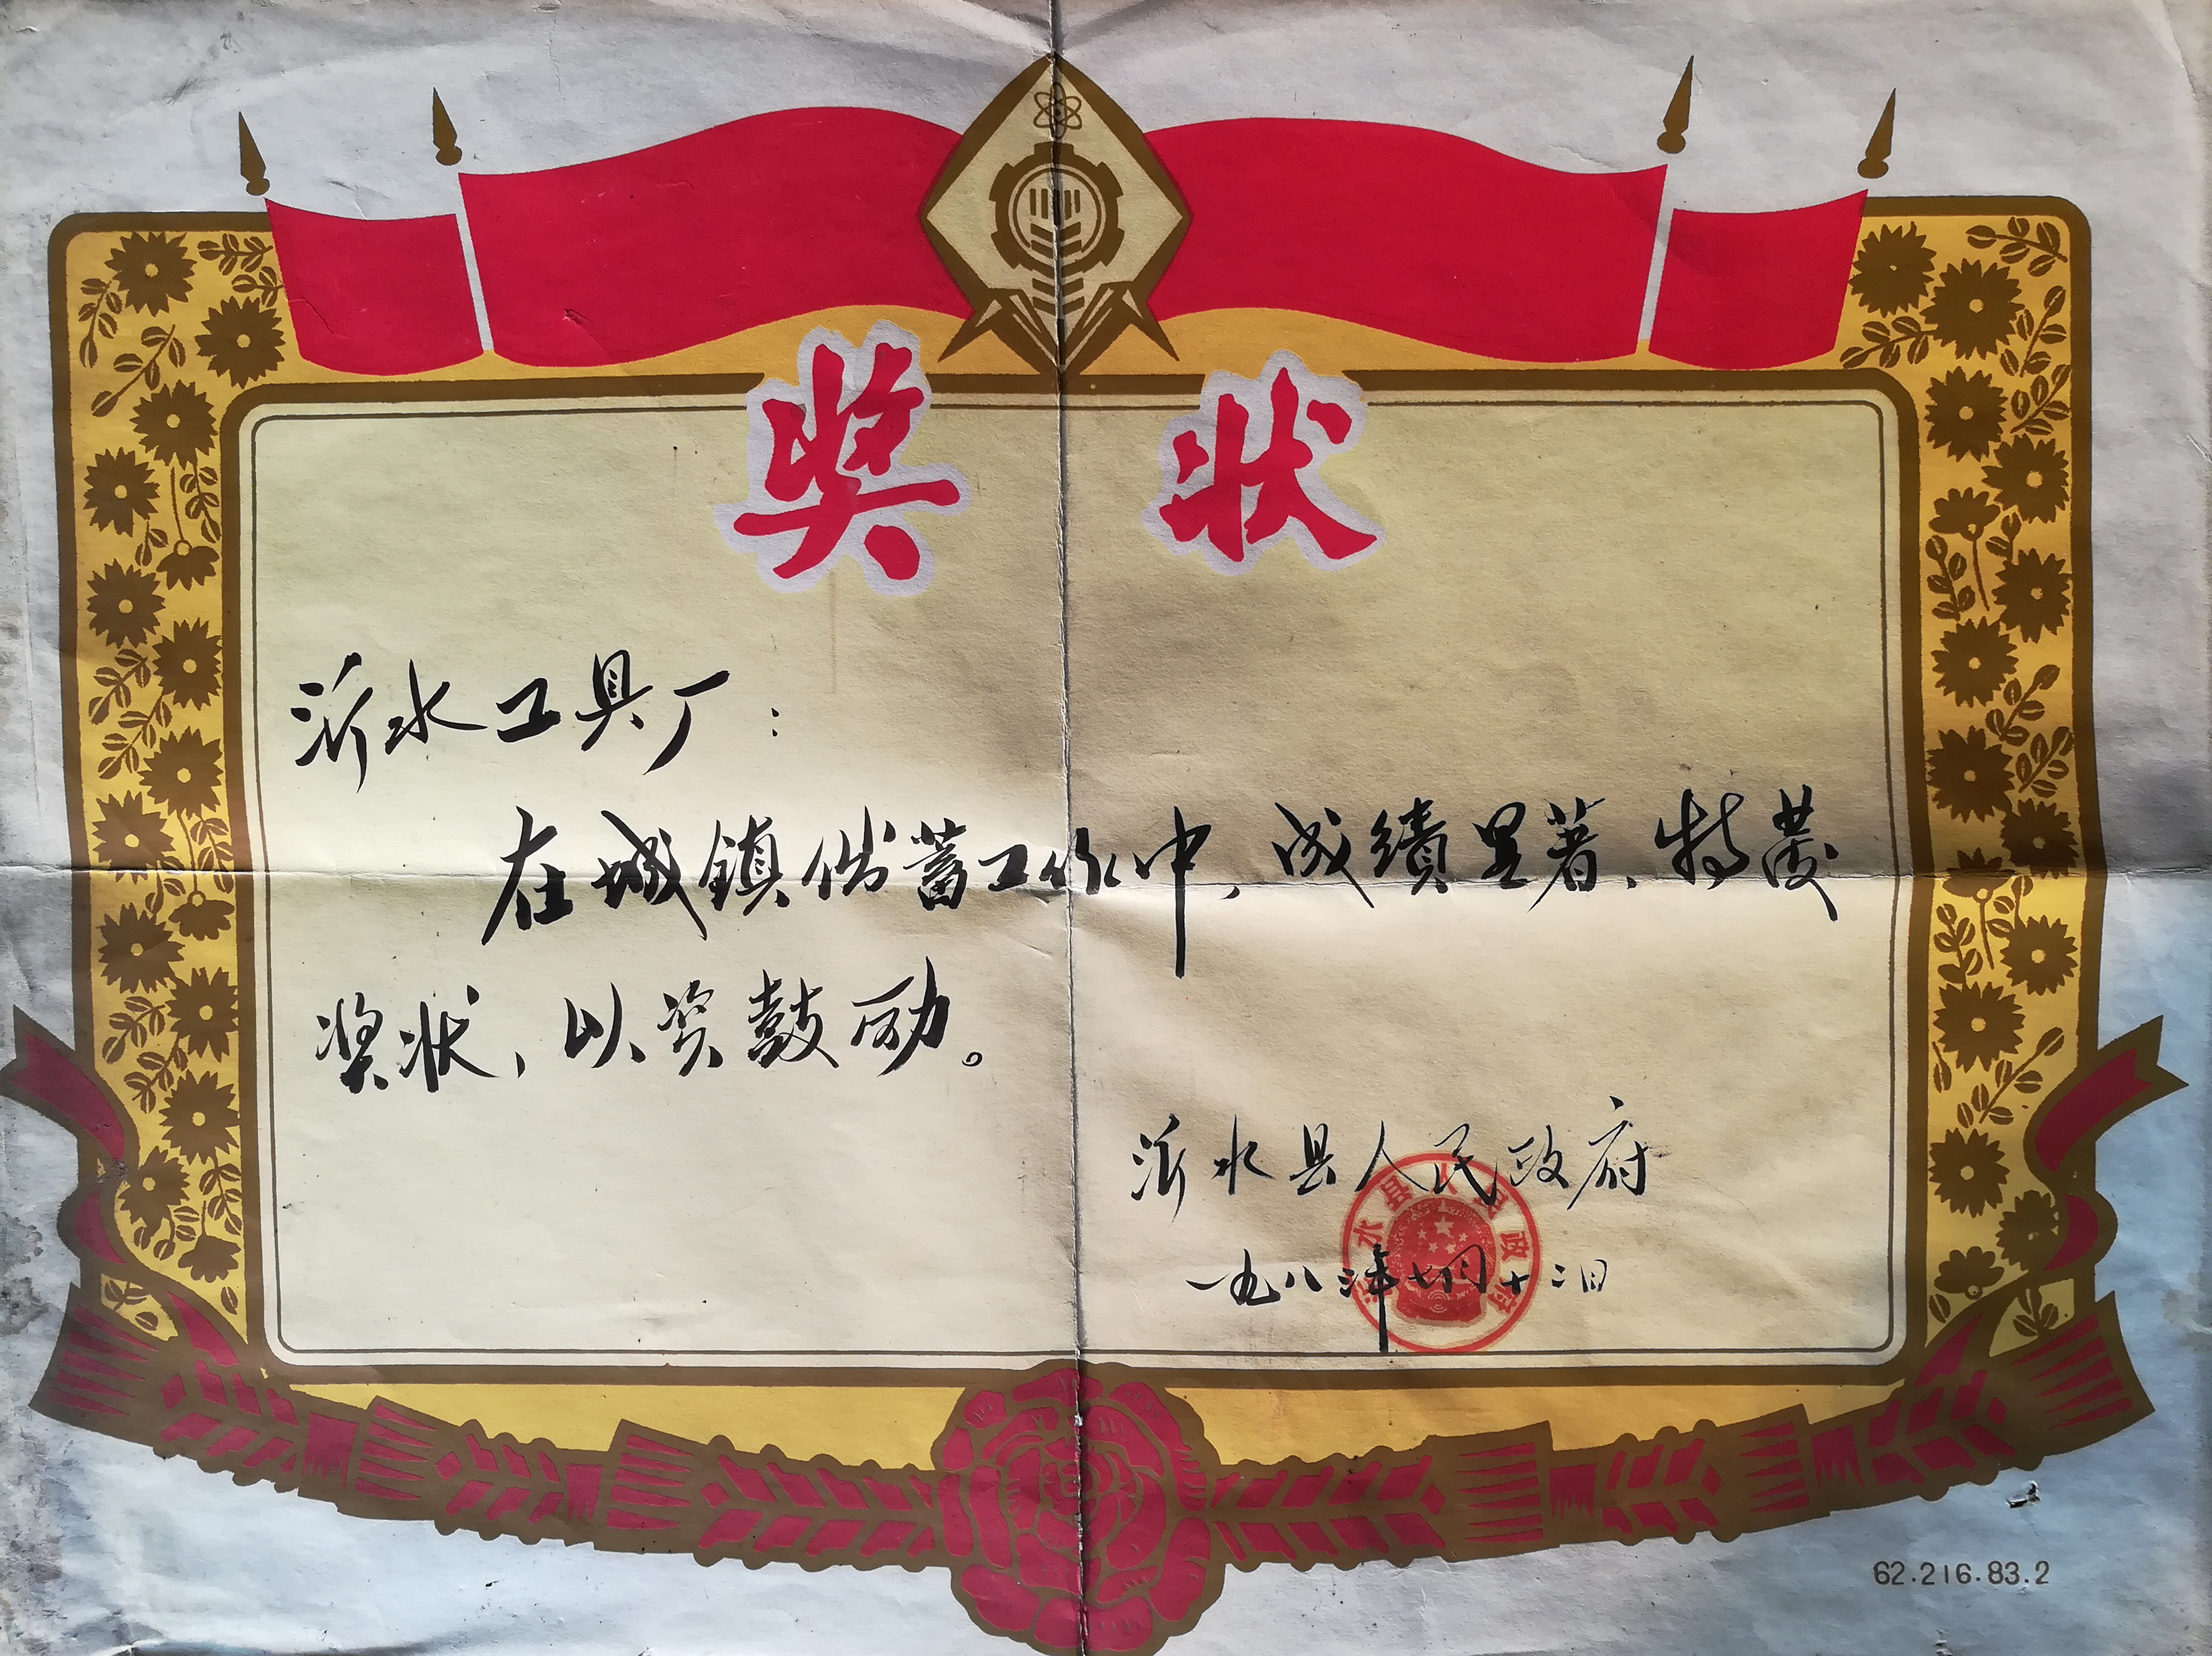 奖状
沂水工具厂：
在城镇储蓄工作中，成绩显著，特发
奖状，以资鼓励。
沂水县人民政府
一九八三年七月十二日
沂水县人民政府
62.216.83.2